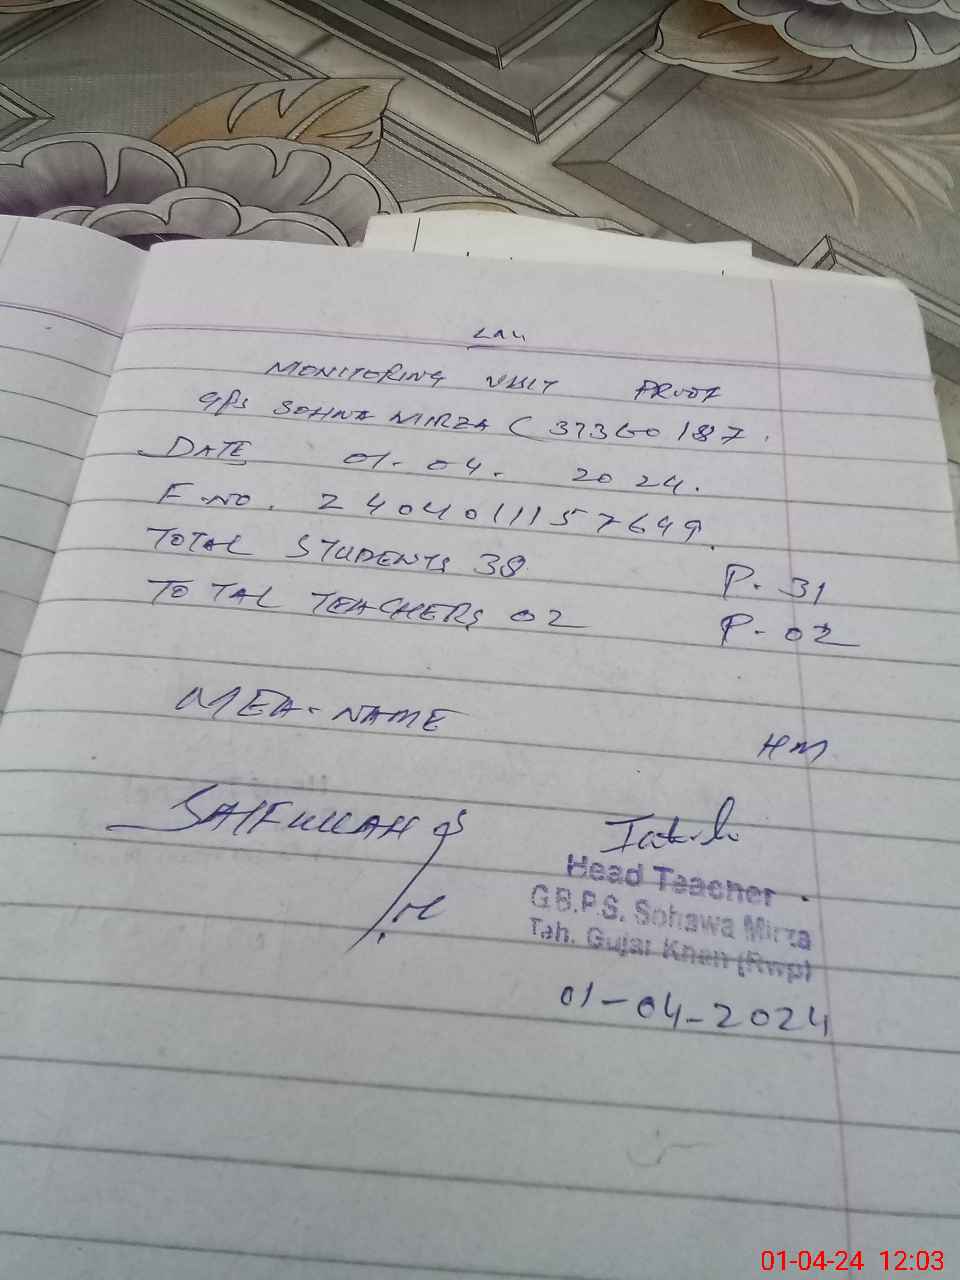 MONITORING VISIT PROOF
GPS SOHNA MIRZA (37360187.
DATE 01.04. 2024.
F.NO. 2404011157649.
TOTAL STUDENTS 38 P. 31
TOTAL TEACHERS 02 P. 02
MEA. NAME HM
SAIFULLAH
Head Teacher
G.B.P.S. Sohawa Mirza
Teh. Gujar Khan (Rwp)
01-04-2024
01-04-24 12:03